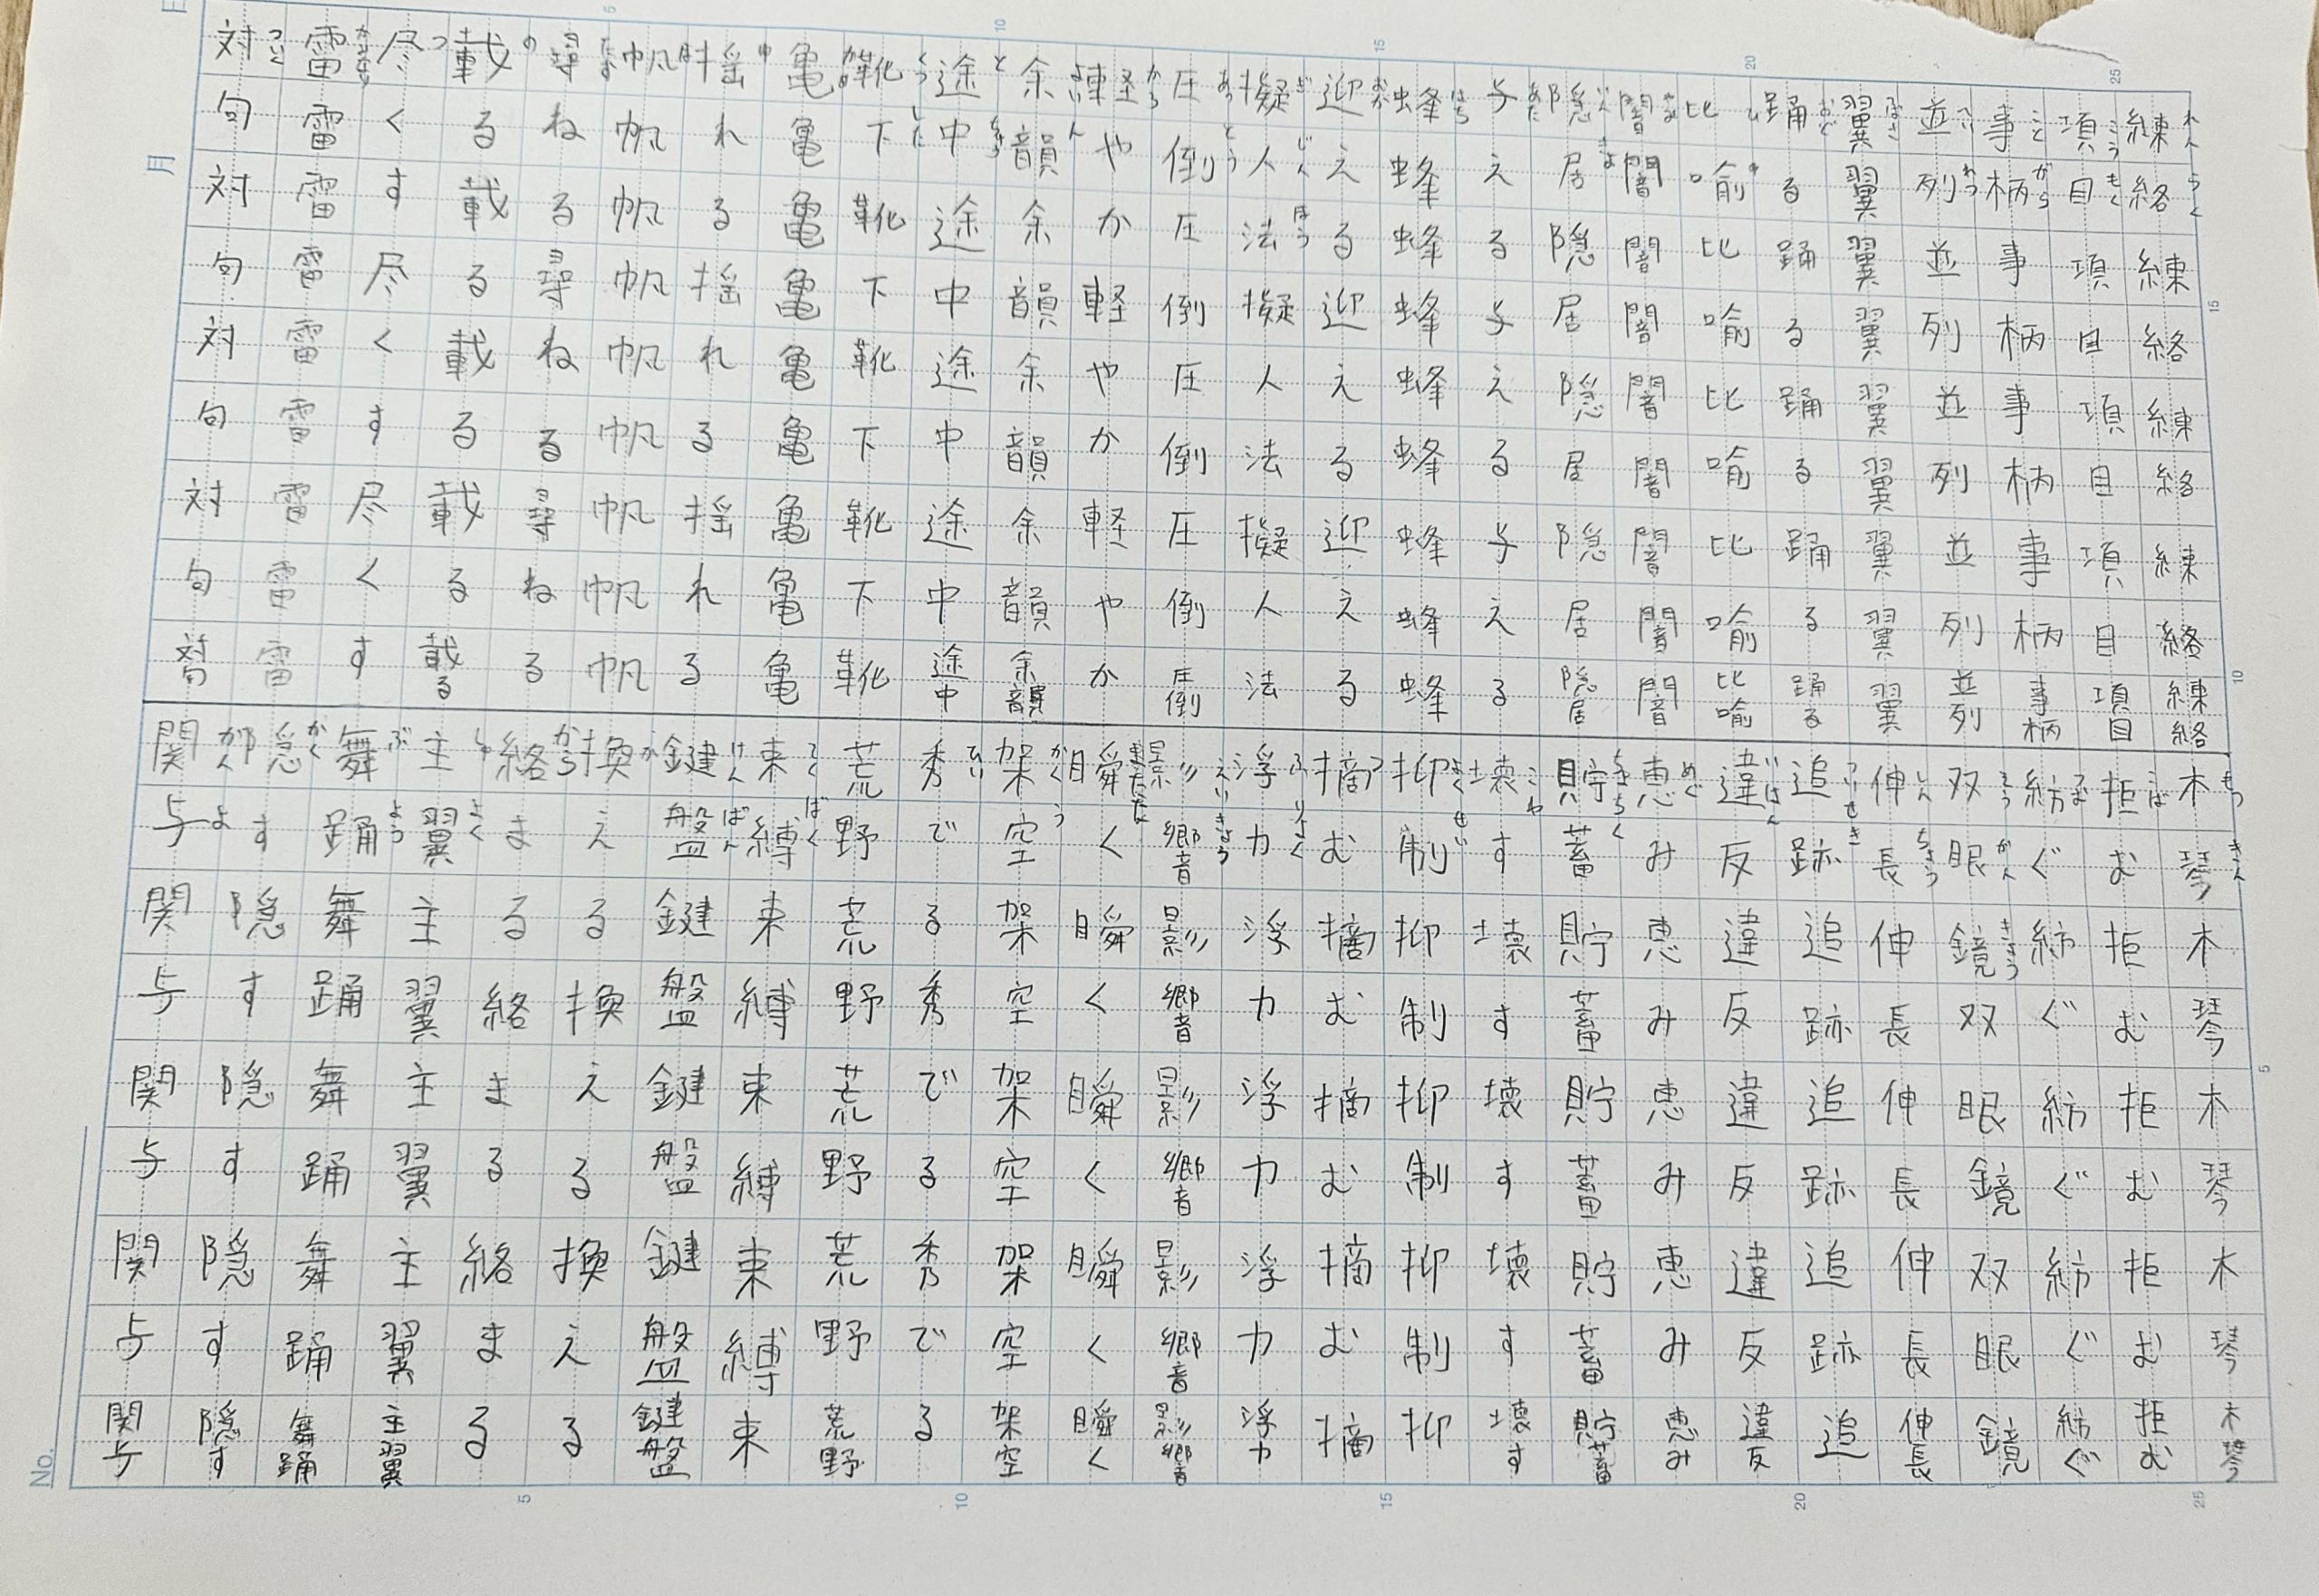 練絡練絡練絡練絡練絡
項目項目項目項目項目
事柄事柄事柄事柄事柄
並列並列並列並列並列
翼翼翼翼翼翼翼翼翼
踊る踊る踊る踊る踊る
比喩比喩比喩比喩比喩
闇闇闇闇闇闇闇闇闇
隠居隠居隠居隠居隠居
与える与える与える
蜂蜂蜂蜂蜂蜂蜂蜂蜂
迎える迎える迎える
擬人法擬人法擬人法
圧倒圧倒圧倒圧倒圧倒
軽やか軽やか軽やか
余韻余韻余韻余韻余韻
途中途中途中途中途中
靴下靴下靴下靴下靴
亀亀亀亀亀亀亀亀亀
揺れる揺れる揺れる
帆帆帆帆帆帆帆帆帆
尋ねる尋ねる尋ねる
載る載る載る載る載る
尽くす尽くす尽くす
雷雷雷雷雷雷雷雷雷
対句対句対句対句対句
木琴木琴木琴木琴木琴
拒む拒む拒む拒む拒む
紡ぐ紡ぐ紡ぐ紡ぐ紡ぐ
双眼鏡双眼鏡双眼鏡
伸長伸長伸長伸長伸長
追跡追跡追跡追跡追
違反違反違反違反違反
恵み恵み恵み恵み恵み
貯蓄貯蓄貯蓄貯蓄貯蓄
壊す壊す壊す壊す壊す
抑制抑制抑制抑制抑
摘む摘む摘む摘む摘
浮力浮力浮力浮力浮力
影響影響影響影響影響
瞬く瞬く瞬く瞬く瞬く
架空架空架空架空架空
秀でる秀でる秀でる
荒野荒野荒野荒野荒野
束縛束縛束縛束縛束
鍵盤鍵盤鍵盤鍵盤鍵盤
換える換える換える
絡まる絡まる絡まる
主翼主翼主翼主翼主翼
舞踊舞踊舞踊舞踊舞踊
隠す隠す隠す隠す隠す
関与関与関与関与関与
No.
月
日
5
10
15
20
25
5
10
15
20
25
5
10
15